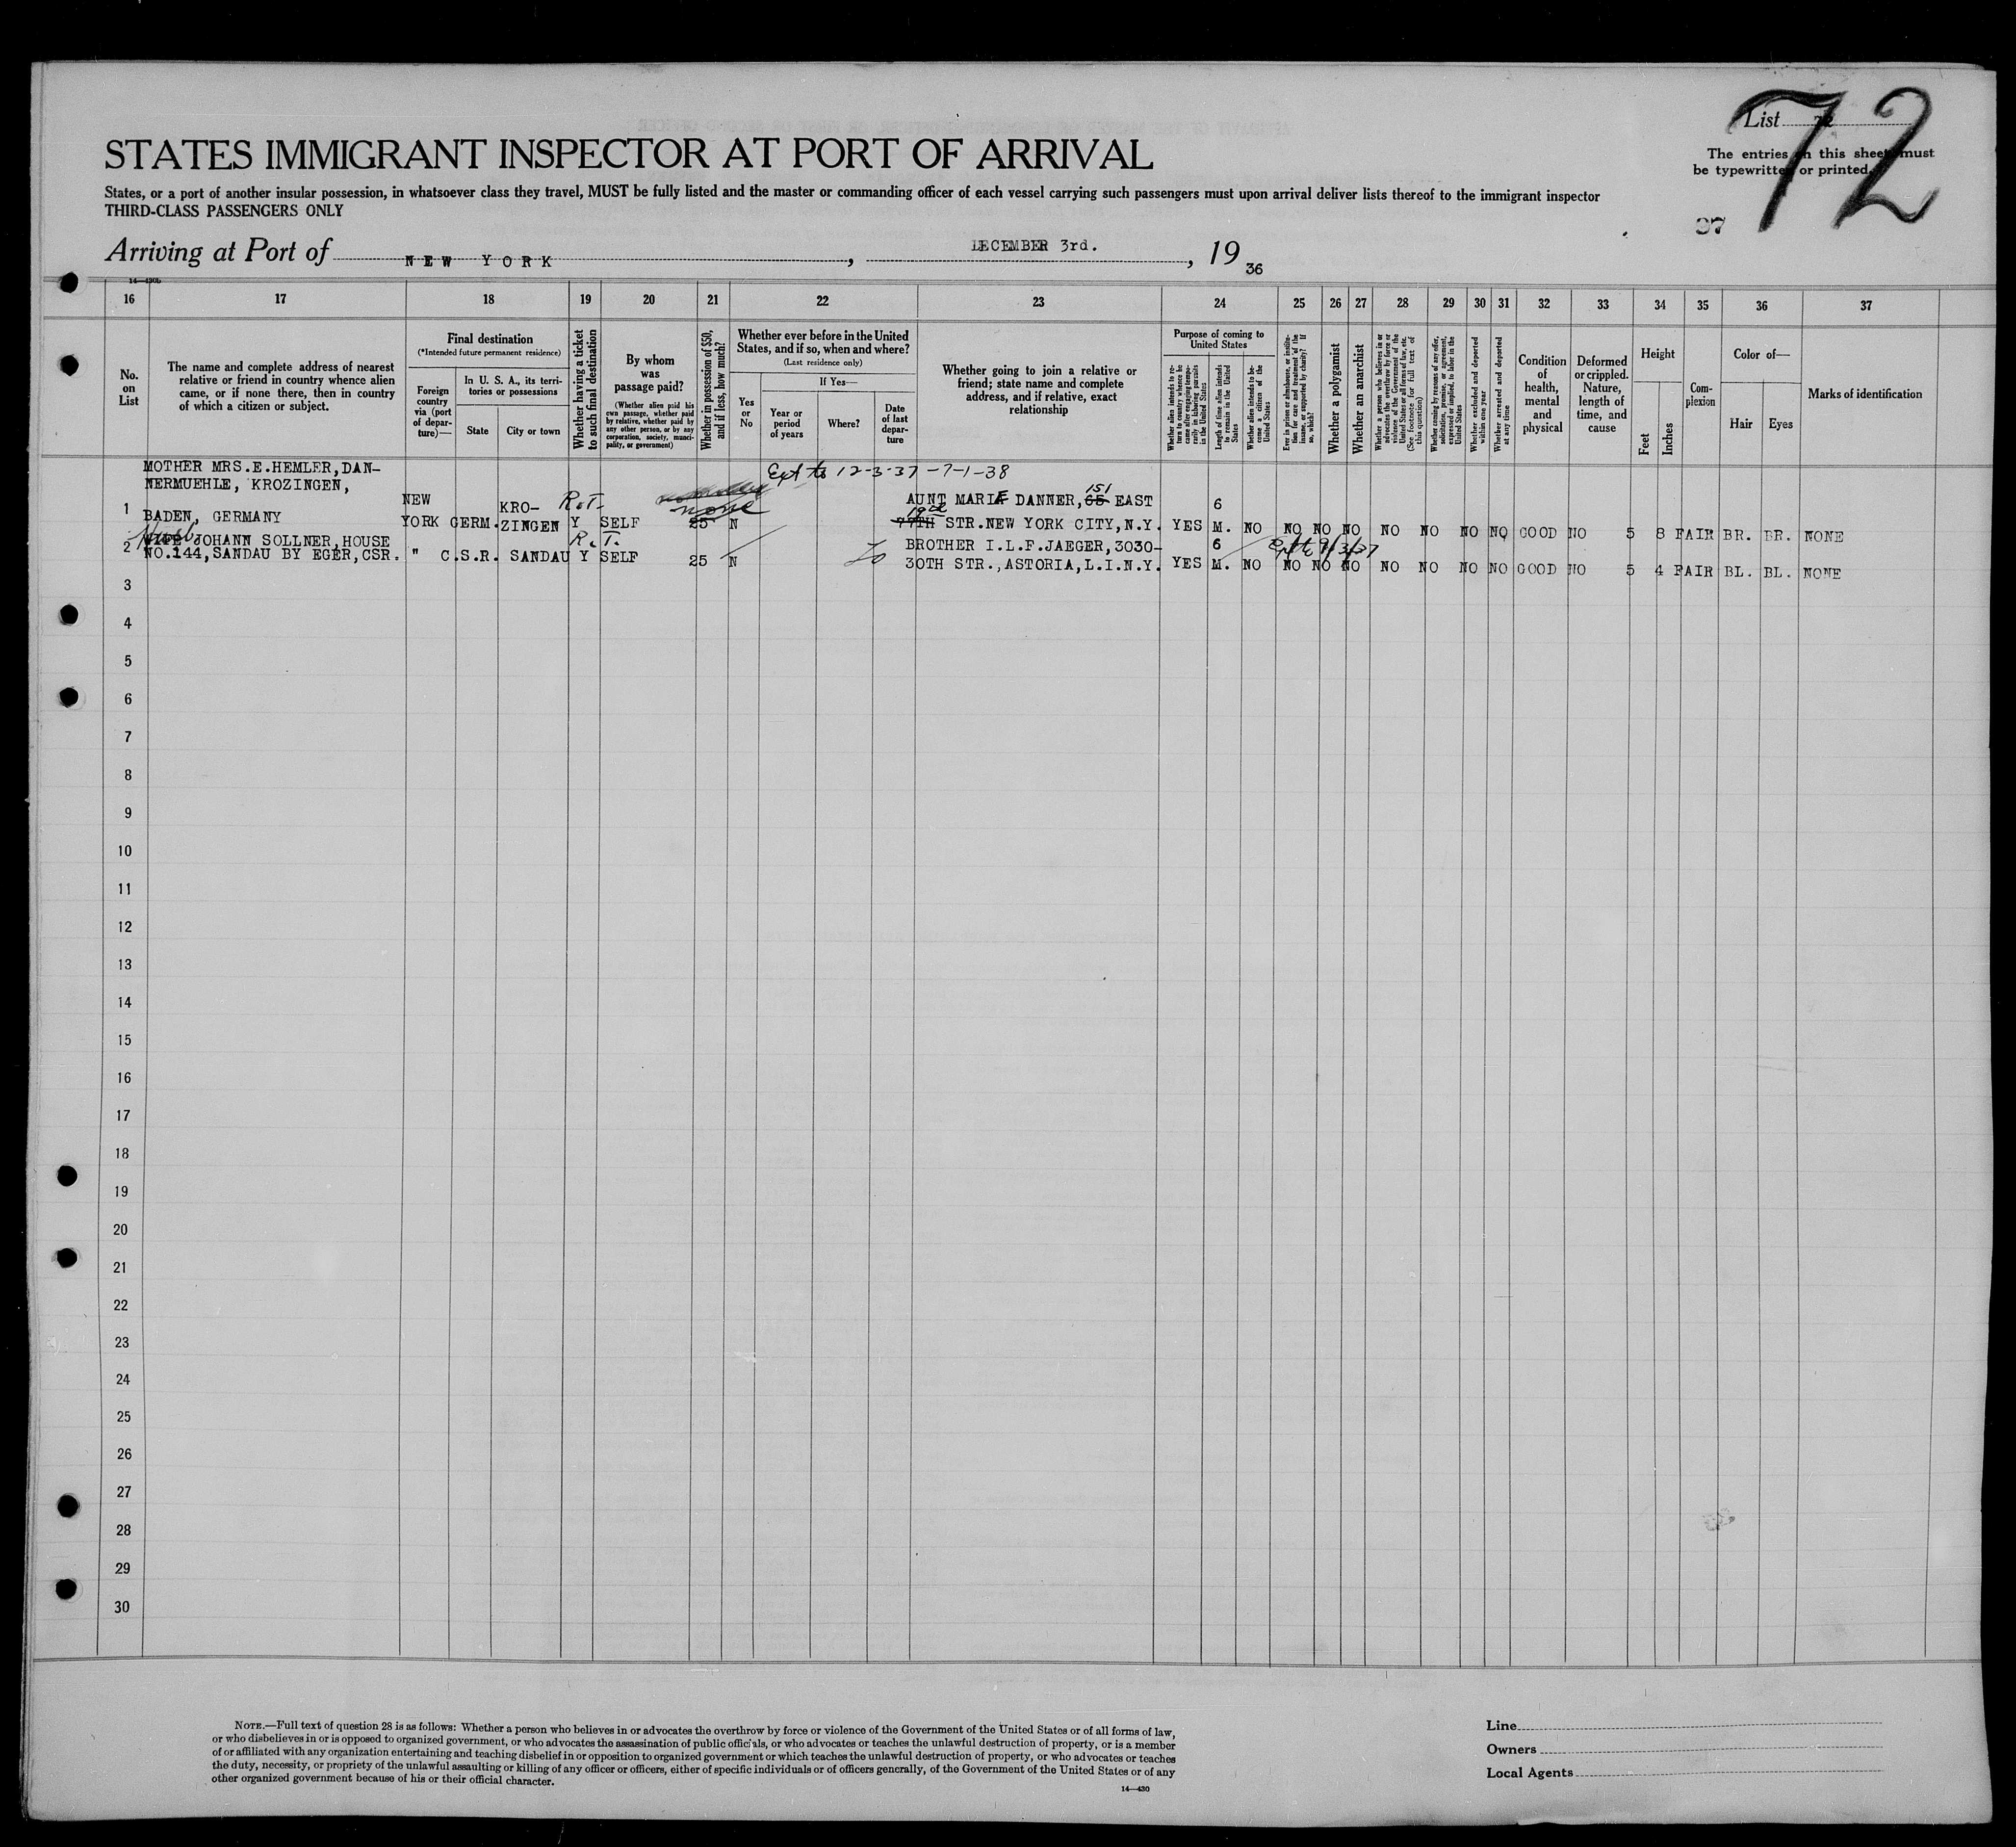 List 72
72
The entries on this sheet must
be typewritten or printed.
97
STATES IMMIGRANT INSPECTOR AT PORT OF ARRIVAL
States, or a port of another insular possession, in whatsoever class they travel, MUST be fully listed and the master or commanding officer of each vessel carrying such passengers must upon arrival deliver lists thereof to the immigrant inspector
THIRD-CLASS PASSENGERS ONLY
Arriving at Port of NEW YORK, DECEMBER 3rd., 19 36
14—430b
16 17 18 19 20 21 22 23 24 25 26 27 28 29 30 31 32 33 34 35 36 37
No. on List
The name and complete address of nearest
relative or friend in country whence alien
came, or if none there, then in country
of which a citizen or subject.
Final destination
(*Intended future permanent residence)
Foreign country via (port of departure)—
In U. S. A., its territories or possessions
State
City or town
Whether having a ticket to such final destination
By whom was passage paid?
(Whether alien paid his own passage, whether paid by relative, whether paid by any other person, or by any corporation, society, municipality, or government)
Whether in possession of $50, and if less, how much?
Whether ever before in the United
States, and if so, when and where?
(Last residence only)
Yes or No
If Yes—
Year or period of years
Where?
Date of last departure
Whether going to join a relative or
friend; state name and complete
address, and if relative, exact
relationship
Purpose of coming to United States
Whether alien intends to return to country whence he came after engaging temporarily in laboring pursuits in the United States
Length of time alien intends to remain in the United States
Whether alien intends to become a citizen of the United States
Ever in prison or almshouse, or institution for care and treatment of the insane, or supported by charity? If so, which?
Whether a polygamist
Whether an anarchist
Whether a person who believes in or advocates the overthrow by force or violence of the Government of the United States or all forms of law, etc. (See footnote for full text of this question)
Whether coming by reasons of any offer, solicitation, promise, or agreement, expressed or implied, to labor in the United States
Whether excluded and deported within one year
Whether arrested and deported at any time
Condition of health, mental and physical
Deformed or crippled. Nature, length of time, and cause
Height
Feet
Inches
Complexion
Color of—
Hair
Eyes
Marks of identification
Ext to 12-3-37 - 7-1-38
MOTHER MRS.E.HEMLER,DAN-
NERMUEHLE, KROZINGEN,
1 BADEN, GERMANY
NEW YORK GERM. KRO-ZINGEN R.T. Y SELF 25 none N
AUNT MARIE DANNER, 65 151 EAST
77TH 19th STR.NEW YORK CITY,N.Y. YES 6 M. NO NO NO NO NO NO NO NO GOOD NO 5 8 FAIR BR. BR. NONE
2 WIFE Husb. JOHANN SOLLNER,HOUSE
NO.144,SANDAU BY EGER,CSR. " C.S.R. SANDAU R.T. Y SELF 25 N to
BROTHER I.L.F.JAEGER,3030-
30TH STR.,ASTORIA,L.I.N.Y. YES 6 M. NO NO NO NO NO NO NO NO GOOD NO 5 4 FAIR BL. BL. NONE
Ext to 9/3/37
3
4
5
6
7
8
9
10
11
12
13
14
15
16
17
18
19
20
21
22
23
24
25
26
27
28
29
30
NOTE.—Full text of question 28 is as follows: Whether a person who believes in or advocates the overthrow by force or violence of the Government of the United States or of all forms of law,
or who disbelieves in or is opposed to organized government, or who advocates the assassination of public officials, or who advocates or teaches the unlawful destruction of property, or is a member
of or affiliated with any organization entertaining and teaching disbelief in or opposition to organized government or which teaches the unlawful destruction of property, or who advocates or teaches
the duty, necessity, or propriety of the unlawful assaulting or killing of any officer or officers, either of specific individuals or of officers generally, of the Government of the United States or of any
other organized government because of his or their official character.
14—430
Line
Owners
Local Agents